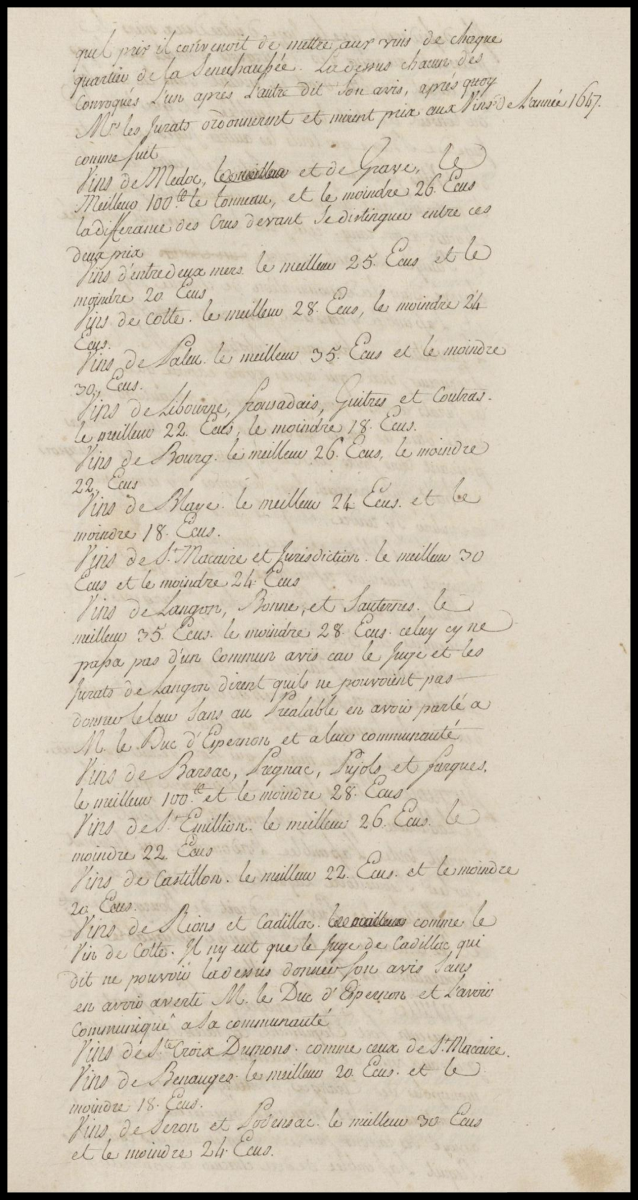 quel prix il convenoit de mettre aux vins de chaque
quartier de la Senechaussée. La dessus chacun des
Convoqués L'un après L'autre dit Son avis, après quoy
Mrs les Jurats ordonnerent et mirent prix aux Vins de L'année 1647.
comme suit
Vins de Medoc, le meilleur et de Grave, le
Meilleur 100tt le tonneau, et le moindre 26 Ecus
la differance des Crus devant Se distinguer entre ces
deux prix
Vins d'entre deux mers. le meilleur 25. Ecus et le
moindre 20 Ecus
Vins de Cotte. le meilleur 28. Ecus, le moindre 24
Ecus.
Vins de Paleu. le meilleur 35. Ecus et le moindre
30. Ecus.
Vins de Libourne, fronsadais, Guitres et Coutras.
le meilleur 22. Ecus, le moindre 18. Ecus.
Vins de Bourg. le meilleur 26. Ecus, le moindre
22. Ecus
Vins de Blaye. le meilleur 24 Ecus. et le
moindre 18. Ecus.
Vins de St Macaire et Jurisdiction. le meilleur 30
Ecus et le moindre 24. Ecus
Vins de Langon, Bonne, et Sauternes. le
meilleur 35. Ecus. le moindre 28. Ecus. celuy cy ne
passa pas d'un Commun avis car le Juge et les
Jurats de Langon dirent quils ne pouvoient pas
donner le leur Sans au Prealable en avoir parlé a
M. le Duc d'Epernon et a leur communauté
Vins de Barsac, Preignac, Pujols et fargues.
le meilleur 100.tt et le moindre 28. Ecus
Vins de St Emillion. le meilleur 26. Ecus. le
moindre 22. Ecus
Vins de Castillon. le meilleur 22. Ecus. et le moindre
20. Ecus.
Vins de Rions et Cadillac. le meilleur comme le
Vin de Cotte. Il n'y eut que le Juge de Cadillac, qui
dit ne pouvoir la dessus donner Son avis Sans
en avoir averti M. le Duc d'Epernon et L'avoir
Communiqué a Sa communauté
Vins de Ste Croix Dumons. comme ceux de St Macaire.
Vins de Benauges. le meilleur 20. Ecus. et le
moindre 18. Ecus.
Vins de Seron et Podensac. le meilleur 30 Ecus
et le moindre 24. Ecus.